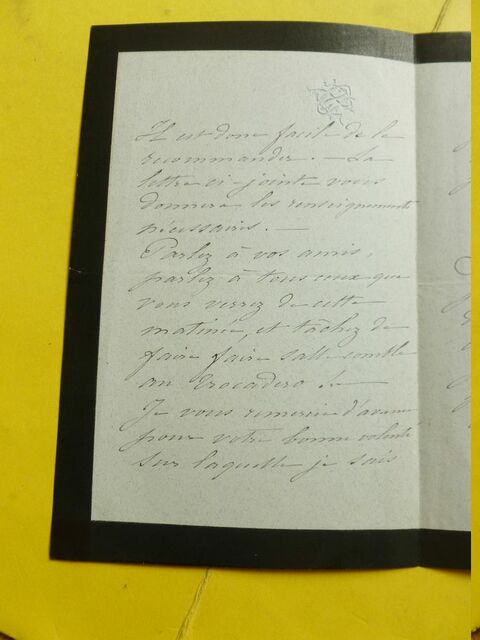 Il est donc facile de le
recommander. — La
lettre ci-jointe vous
donnera les renseignements
nécessaires. —
Parlez à vos amis,
parlez à tous ceux que
vous verrez de cette
matinée, et tâchez de
faire faire salle comble
au Trocadéro! —
Je vous remercie d'avance
pour votre bonne volonté
sur laquelle je sais